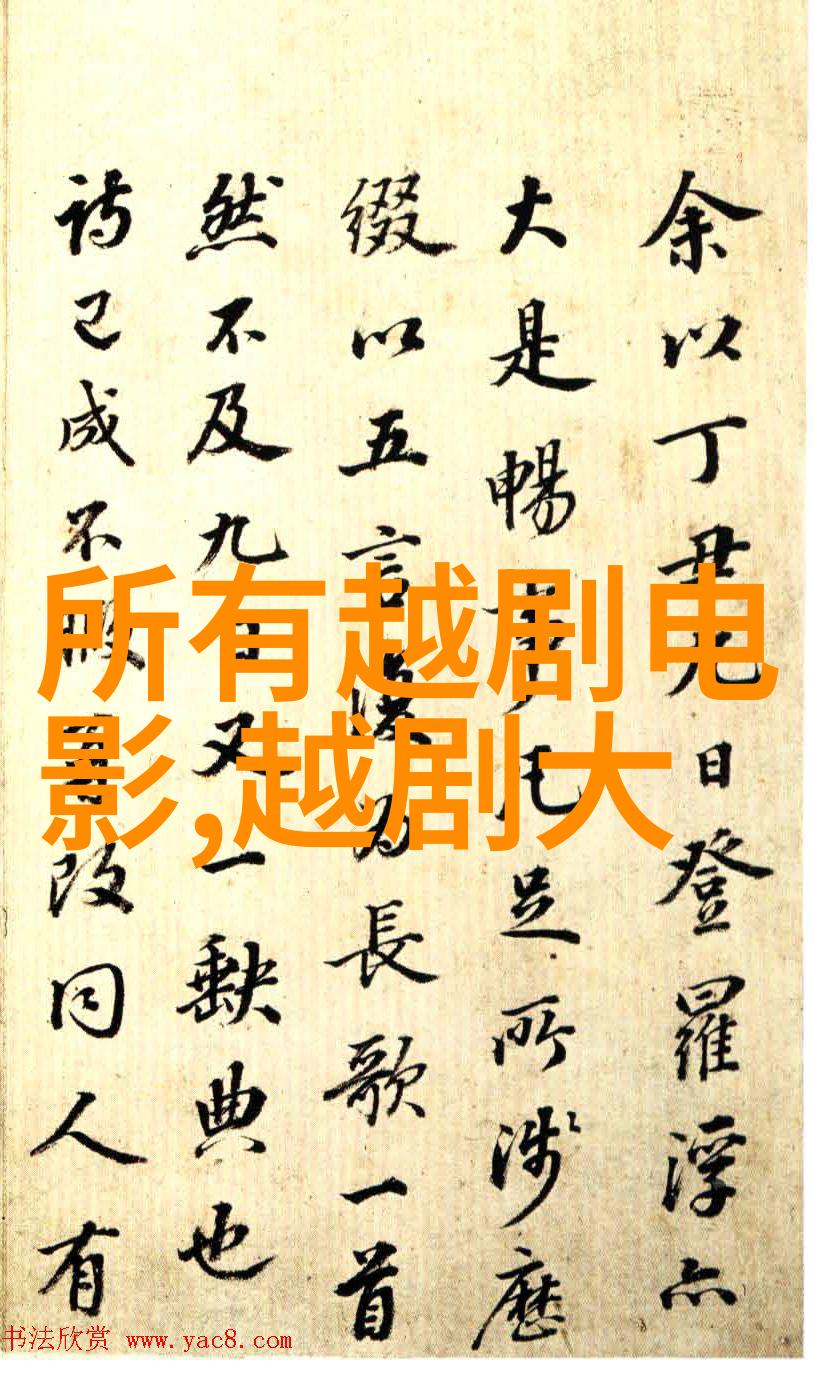 余以丁日登羅浮亦
大是暢凡足所涉歷
綴以五言為長歌一首
然不及九日又一缺典也
詩已成不暇改同人有
所有越剧电
影,越剧大
书法欣赏 www.yac8.com